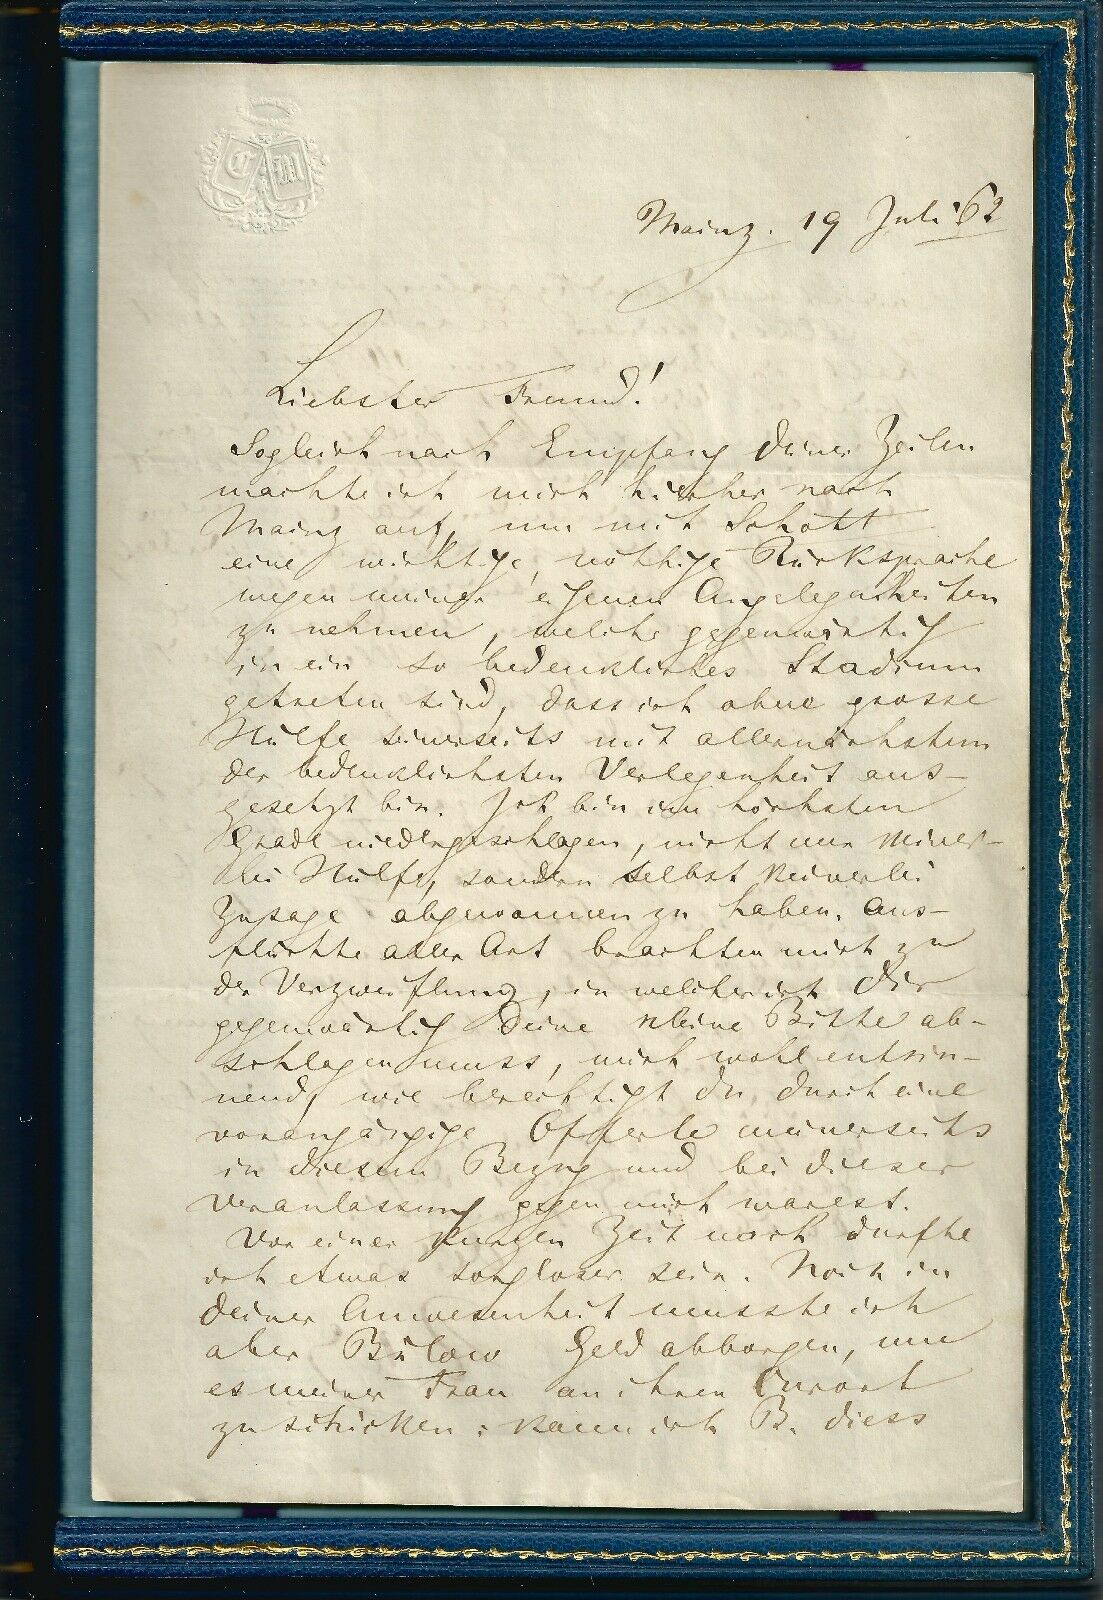 C M
Mainz. 19 Juli 62
Liebster Freund!
Sogleich nach Empfang deiner Zeilen
machte ich mich hierher nach
Mainz auf, um mit Schott
eine wichtige, nöthige Rücksprache
wegen meiner eigenen Angelegenheiten
zu nehmen, welche gegenwärtig
in ein so bedenkliches Stadium
getreten sind, dass ich ohne grosse
Hülfe seinerseits mit allernächstem
der bedenklichsten Verlegenheit aus-
gesetzt bin. Ich bin im höchsten
Grade niedergeschlagen, nicht nur keiner-
lei Hülfe, sondern selbst keinerlei
Zusage abgewonnen zu haben. Aus-
flüchte aller Art brachten mich zu
der Verzweiflung, in welcher ich dir
gegenwärtig deine kleine Bitte ab-
schlagen muss, mich wohl entsin-
nend, wie berechtigt du durch eine
vorangängige Offerte meinerseits
in diesem Bezug und bei dieser
Veranlassung gegen mich warest.
Vor einer kurzen Zeit noch durfte
ich etwas sorgloser sein. Noch in
deiner Anwesenheit musste ich
aber Bülow Geld abborgen, um
es meiner Frau an ihren Curort
zu schicken: kann ich B. diess